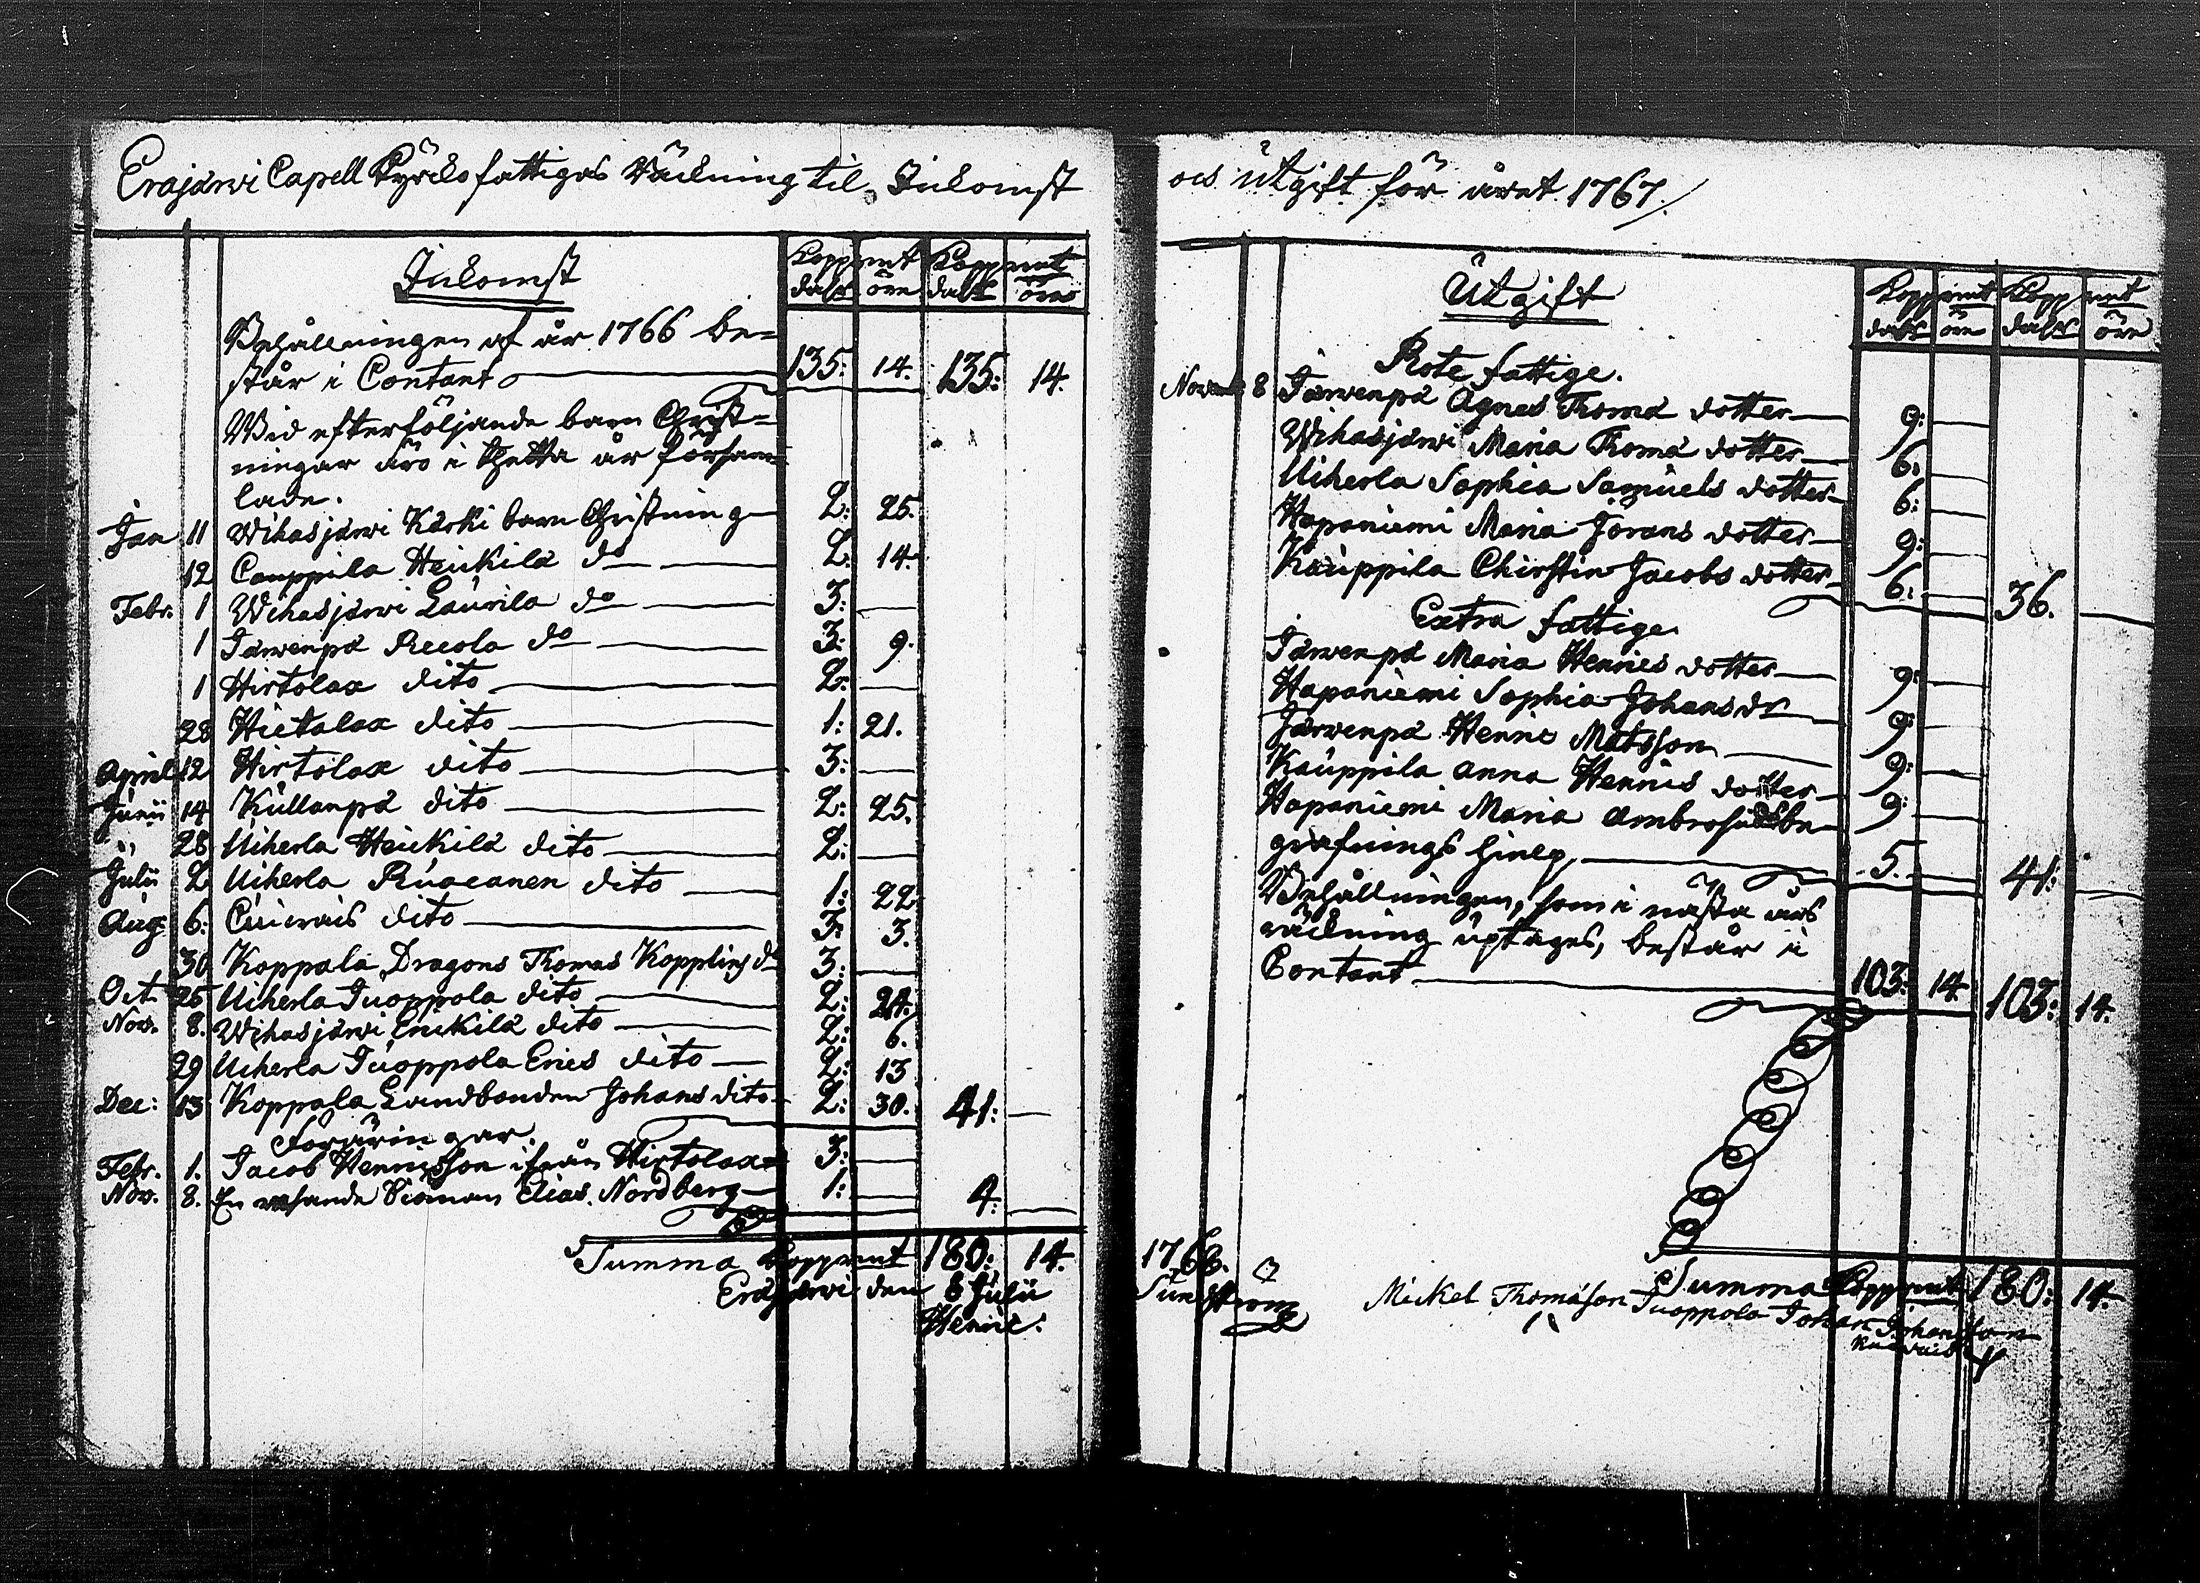 Erajärwi Capell Kyrckofattigas Räckning til Inkomst
Inkomst
Koppmt Koppmt
dalr öre dalr öre
Behållningen af år 1766 be=
står i Contant 135: 14. 135: 14.
Wid efterföljande barn Christ=
ningar äro i thetta år försam=
lade.
Jan 11 Wihasjärwi Kärki barn Christning 2: 25.
12 Cauppila Heickilä do 2: 14
Febr. 1 Wihasjärwi Laurila do 3: —
1 Järwenpä Reeola do 3: 9.
1 Hirtolax dito 2: —
28 Hietalax dito 1: 21.
April 12 Hirtolax dito 3: —
Junii 14 Kullanpä dito 2: 25.
" 28 Uiherla Heickilä dito 2: —
Julii 2 Uiherla dito 1: 22
Aug: 6: Cuiwais dito 3: 3.
30 Koppala Dragons Thomas Kopplins do 3: —
Oct. 25 Uiherla Juoppola dito 2: 24.
Nov. 8. Wihasjärwi Erickilä dito 2: 6.
29 Uiherla Juoppola Erics dito 2: 13
Dec: 13 Koppala Landbonden Johans dito 2: 30. 41: —
Föräringar.
Febr. 1. Jacob Henricsson ifrån Hirtolax 3: —
Nov. 8. En resande Elias Nordberg 1: — 4: —
Summa Koppmt 180: 14.
Eräjärwi den 8 Julii
Henric:
och Utgift för året 1767.
Utgift
Koppmt Koppmt
dalr öre dalr öre
Rote fattige.
Novemb 8 Järwenpä Agnes Thomä dotter 9: —
Wihasjärwi Maria Thomä dotter 6: —
Uiherla Sophia Samuels dotter 6: —
Haponiemi Maria Jörans dotter 9: —
Kauppila Chirstin Jacobs dotter 6: — 36. —
Extra fattige
Järwenpä Maria Henrics dotter 9: —
Haponiemi Sophia Johans dr 9: —
Järwenpä Henric Matsson 9: —
Kauppila Anna Henrics dotter 9: —
Haponiemi Maria be=
grafnings hielp 5. — 41: —
Behållningen, som i nästa års
räckning uptages, består i
Contant 103: 14 103: 14.
Summa Koppmt 180: 14.
1768.
Sundström
Mickel Thomasson Juoppola Johan Johansson
Kuiwais